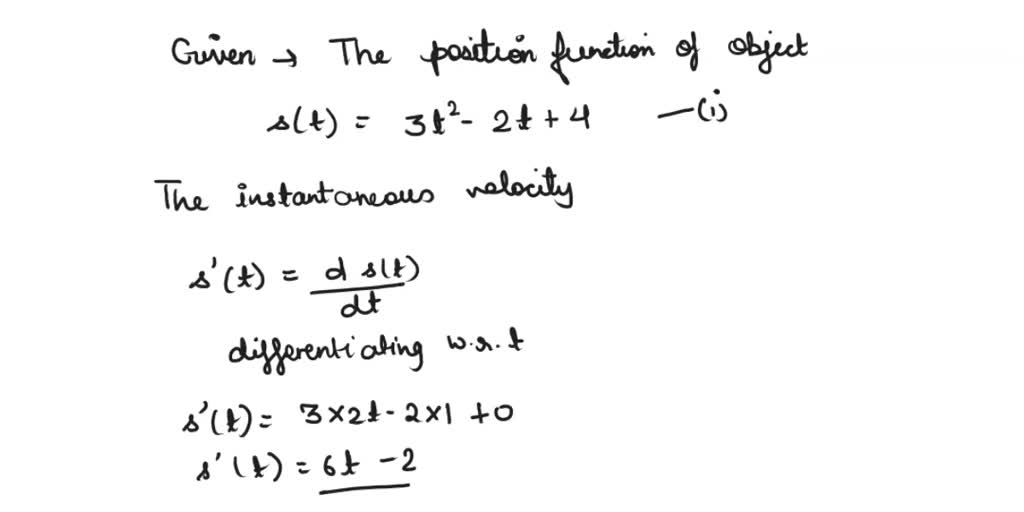 Given → The position function of object
s(t) = 3t² - 2t + 4 —(i)
The instantaneous velocity
s'(t) = d s(t)
dt
differentiating w.r.t
s'(t) = 3×2t - 2×1 + 0
s'(t) = 6t - 2